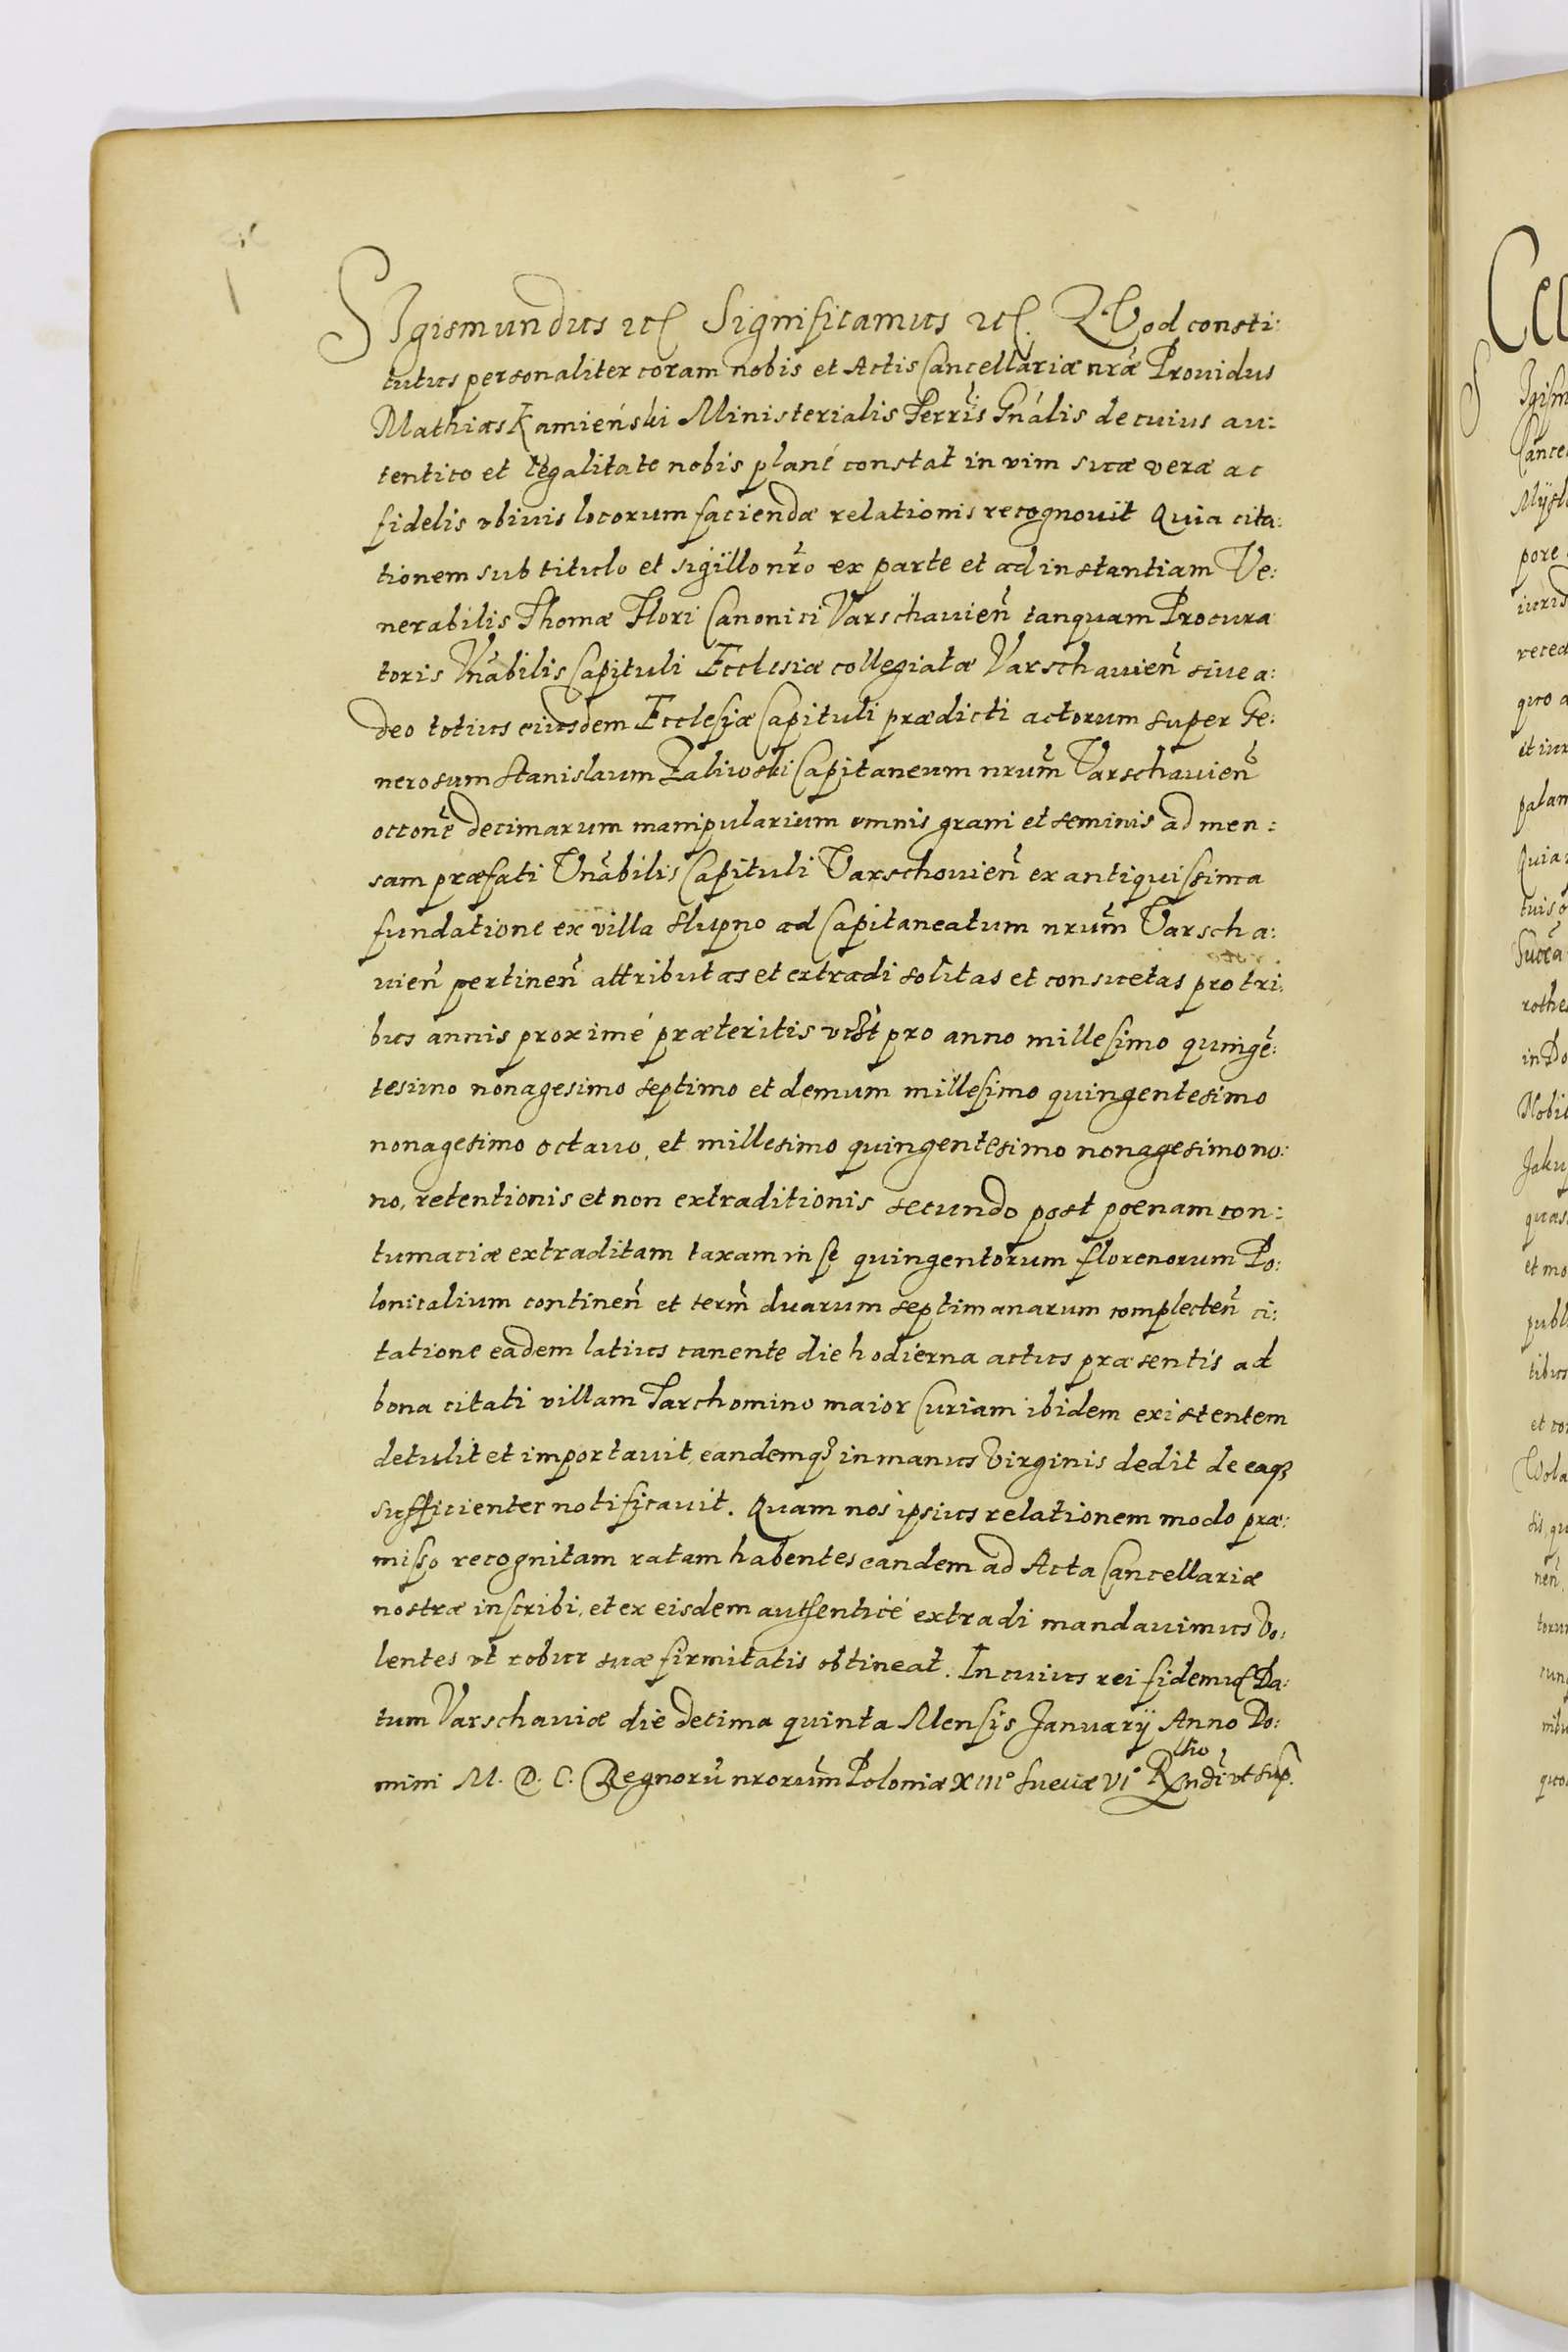 SIgismundus etc Significamus etc. QVod consti:
tutus personaliter coram nobis et Actis Cancellariæ nr̃æ Prouidus
Mathias Kamieński Ministerialis Terrr̃is Gnãlis de cuius au:
tentico et legalitate nobis planè constat in vim suæ veræ ac
fidelis vbiuis locorum faciendæ relationis recognouit Quia cita:
tionem sub titulo et sigillo nr̃o ex parte et ad instantiam Ve:
nerabilis Thomæ Flori Canonici Varschauien̄ tanquam Procura
toris Vnãbilis Capituli Ecclesiæ collegiatæ Varschauien̄ siue a:
deo totius eiusdem Ecclesiæ Capituli prædicti actorum super Ge:
nerosum Stanislaum Zaliwski Capitaneum nrum̃ Varschauien̄
occonē decimarum manipularium omnis grani et seminis ad men:
sam præfati Vnãbilis Capituli Varschouien̄ ex antiquissima
fundatione ex villa Slupno ad Capitaneatum nrum̃ Varscha:
uien̄ pertinen̄ attributas et extradi solitas et consuetas pro tri:
bus annis proximè præteritis vidt̃ pro anno millesimo quingē:
tesimo nonagesimo septimo et demum millesimo quingentesimo
nonagesimo octauo, et millesimo quingentesimo nonagesimo no:
no, retentionis et non extraditionis secundo post poenam con:
tumaciæ extraditam taxam in se quingentorum florenorum Po:
lonicalium continen̄ et term̄ duarum septimanarum complecten̄ ci:
tatione eadem latius canente die hodierna actus præsentis ad
bona citati villam Tarchomino maior Curiam ibidem existentem
detulit et importauit, eandemq́ in manus Virginis dedit de eaq́
sufficienter notificauit. Quam nos ipsius relationem modo præ:
misso recognitam ratam habentes eandem ad Acta Cancellariæ
nostræ inscribi, et ex eisdem authenticè extradi mandauimus Vo:
lentes vt robur suæ firmitatis obtineat. In cuius rei fidem etc Da:
tum Varschauiæ die decima quinta Mensis Januarij Anno Do:
mini M. D. C. Regnorū nrorum̃ Poloniæ XIII° Sueciæ VI° R̃ndi vt sup.